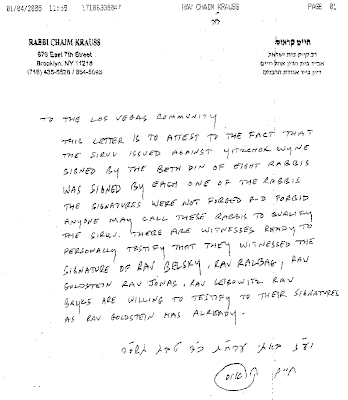 01/04/2005 11:59 17186335847 RAV CHAIM KRAUSS PAGE 01
RABBI CHAIM KRAUSS
676 East 7th Street
Brooklyn, NY 11218
חיים קרויס
TO THE LOS VEGAS COMMUNITY
THIS LETTER IS TO ATTEST TO THE FACT THAT
THE SIRUV ISSUED AGAINST YITZCHOK WYNE
SIGNED BY THE BETH DIN OF EIGHT RABBIS
WAS SIGNED BY EACH ONE OF THE RABBIS
THE SIGNATURES WERE NOT FORGED A-D FORBID
ANYONE MAY CALL THESE RABBIS TO QUALIFY
THE SIRUV. THERE ARE WITNESSES READY TO
PERSONALLY TESTIFY THAT THEY WITNESSED THE
SIGNATURE OF RAV BELSKY, RAV RALBAG, RAV
GOLDSTEIN RAV JONAS, RAV LEIBOWITZ RAV
ARE WILLING TO TESTIFY TO THEIR SIGNATURES
AS RAV GOLDSTEIN HAS ALREADY.